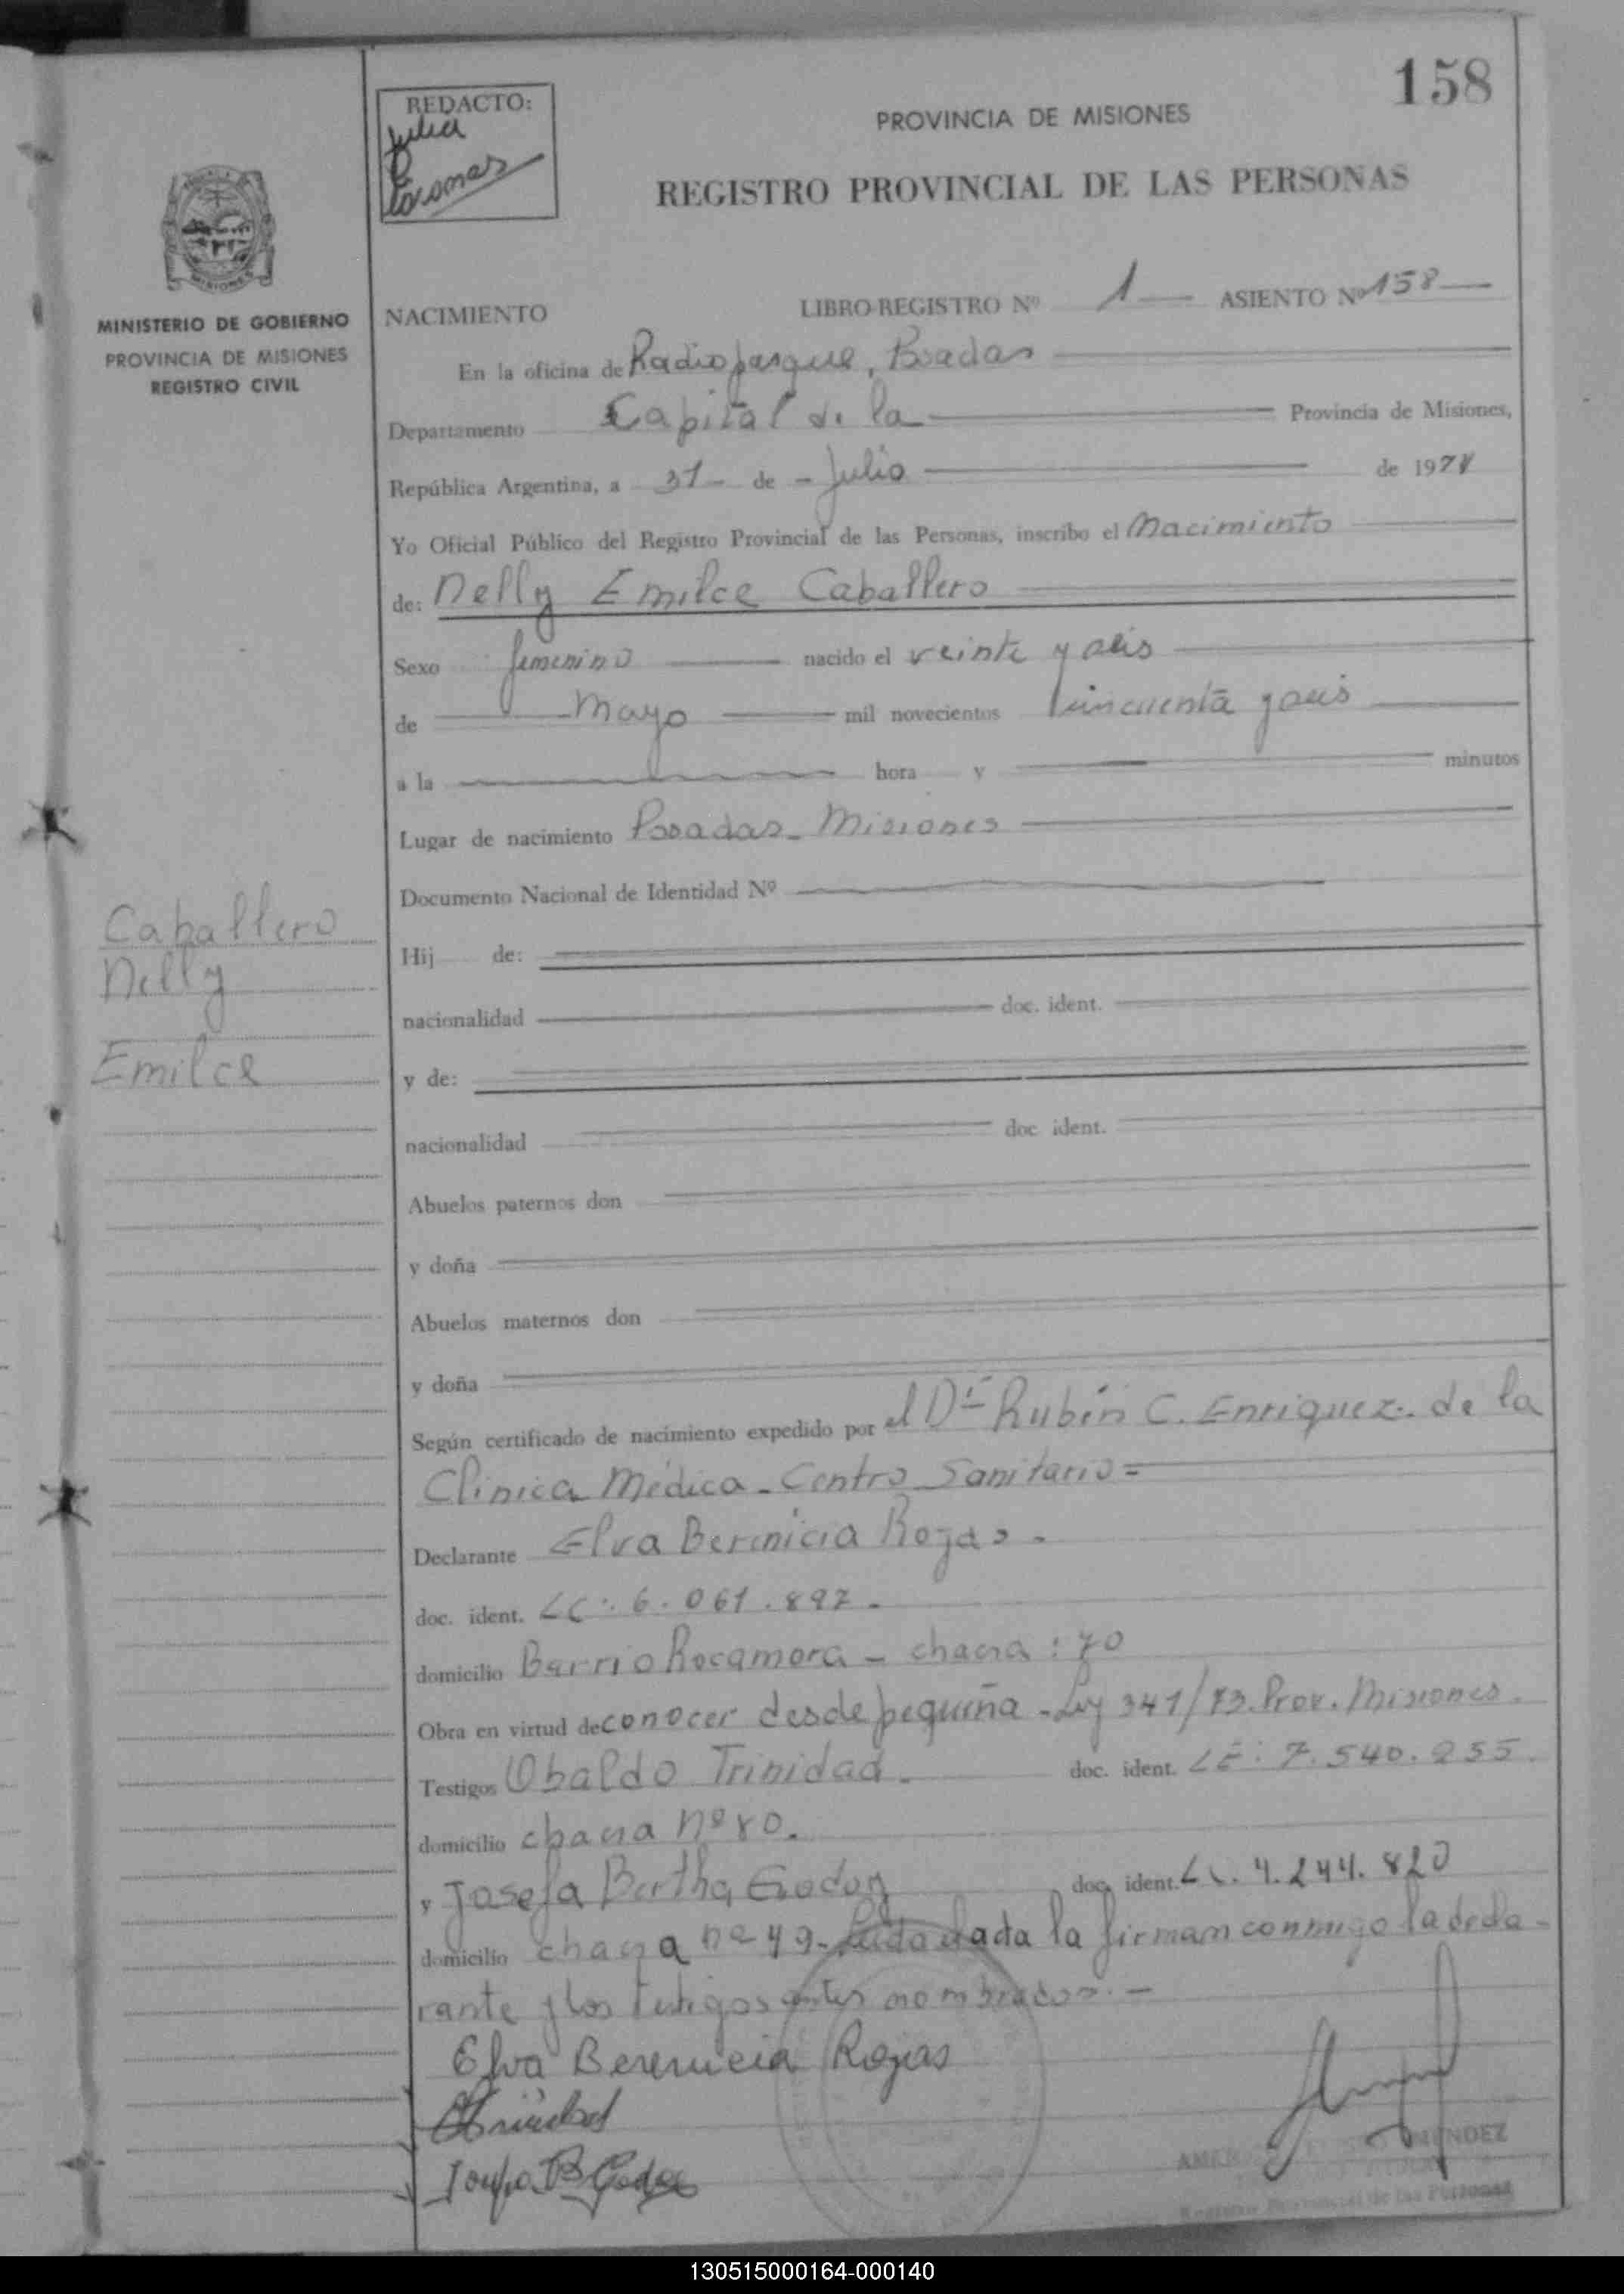 158
REDACTO:
Julia
PROVINCIA DE MISIONES
REGISTRO PROVINCIAL DE LAS PERSONAS
MISIONES
MINISTERIO DE GOBIERNO
PROVINCIA DE MISIONES
REGISTRO CIVIL
NACIMIENTO LIBRO-REGISTRO Nº 1 ASIENTO Nº 158
En la oficina de Radioparque, Posadas
Departamento Capital de la Provincia de Misiones,
República Argentina, a 31 de Julio de 197
Yo Oficial Público del Registro Provincial de las Personas, inscribo el Nacimiento
de: Nelly Emilce Caballero
Sexo femenino nacido el veinte y seis
de Mayo mil novecientos cincuenta y seis
a la hora y minutos
Lugar de nacimiento Posadas - Misiones
Documento Nacional de Identidad Nº
Caballero
Nelly
Emilce
Hij de:
nacionalidad doc. ident.
y de:
nacionalidad doc. ident.
Abuelos paternos don
y doña
Abuelos maternos don
y doña
Según certificado de nacimiento expedido por el Dr Rubén C. Enriquez. de la
Clinica Médica - Centro Sanitario =
Declarante Elva Berenicia Rojas.
doc. ident. LC: 6.061.897.
domicilio Barrio Rocamora - chacra: 70
Obra en virtud de conocer desde pequeña - Ley 341/73. Prov. Misiones.
Testigos Obaldo Trinidad. doc. ident. LE: 7.540.255.
domicilio chacra Nº 80.
y Josefa Bertha Godoy doc. ident. LC. 4.244.820
domicilio chacra nº 49 - Leida dada la firman conmigo la decla-
rante y los testigos antes nombrados. -
Elva Berenicia Rojas
Trinidad
Josefa B Godoy
Registro Provincial de las Personas
130515000164-000140